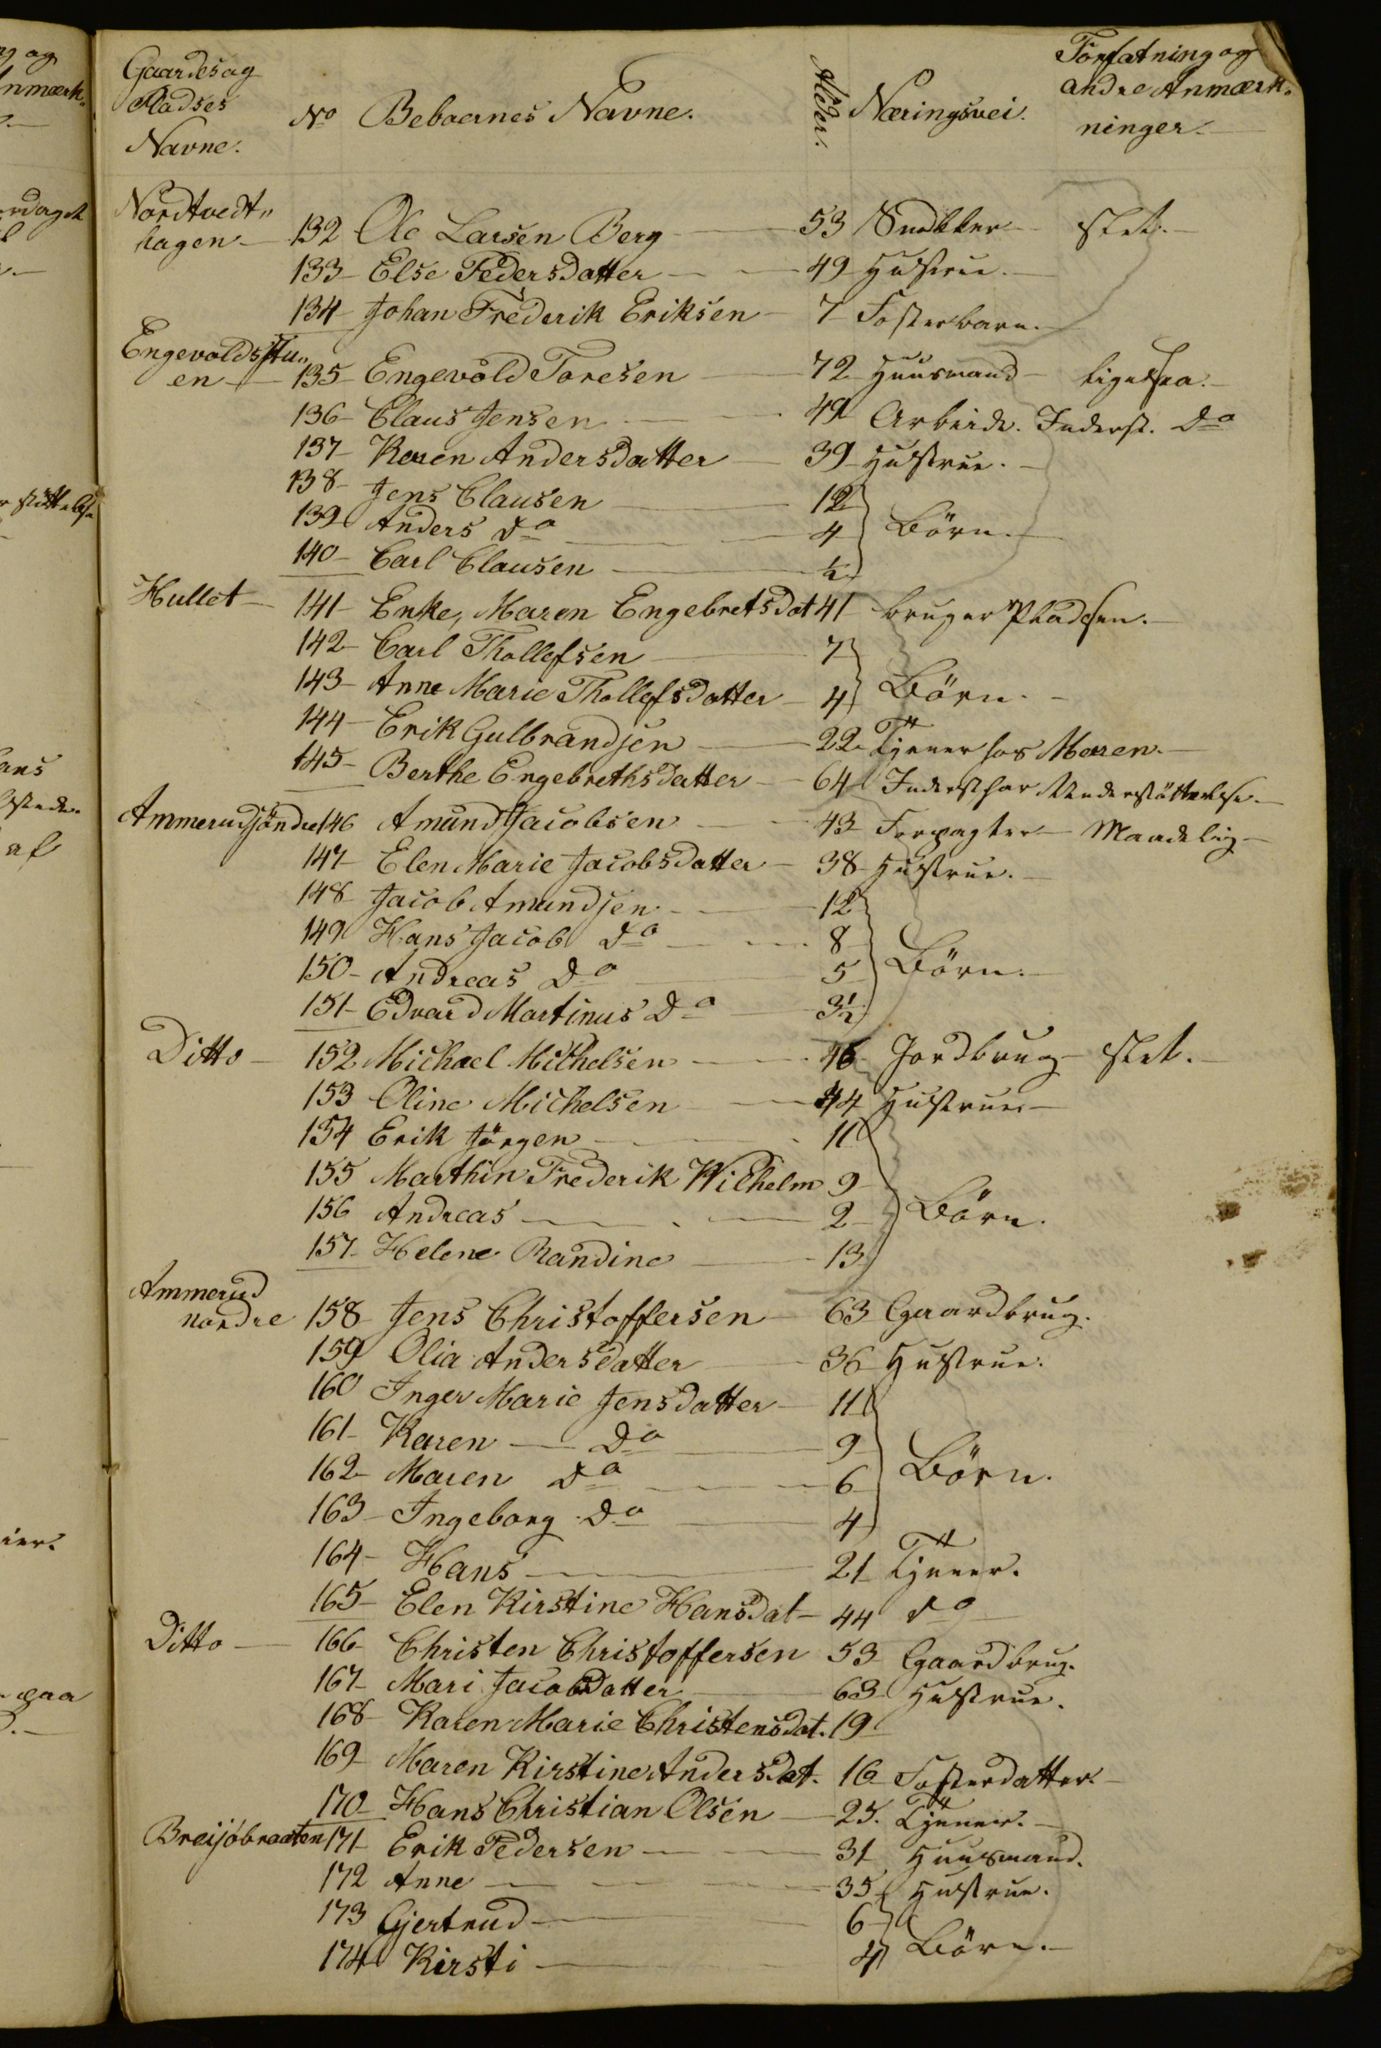 Gaardes og Pladses Navne. No Beboernes Navne. Alder. Næringsvei. Forfatning og andre Anmærkninger.
Nordtvedt„
hagen 132 Ole Larsen Berg 53 Snedker slet.
133 Else Pedersdatter 49 Hustrue.
134 Johan Frederik Eriksen 7 Fosterbarn.
Engevoldsstu„
en 135 Engevold Toresen 72 Huusmand ligesaa.
136 Claus Jensen 49 Arbeids. Inderst. Do
137 Karen Andersdatter 39 Hustrue.
138 Jens Clausen 12
139 Anders Do 4 Börn.
140 Carl Clausen ½
Hullet 141 Enke, Maren Engebretsdat 41 bruger Pladsen.
142 Carl Thollefsen 7
143 Anne Marie Thollefsdatter 4 Börn.
144 Erik Gulbrandsen 22 Tjener hos Maren.
145 Berthe Engebrethsdatter 64 Inderst har Understöttelse.
Ammerud söndre 146 Amund Jacobsen 43 Forpagter Maadelig
147 Elen Marie Jacobsdatter 38 Hustrue.
148 Jacob Amundsen 12
149 Hans Jacob Do 8
150 Andreas Do 5 Börn.
151 Edvard Martinus Do 3½
Ditto 152 Michael Michelsen 46 Jordbrug slet.
153 Oline Michelsen 44 Hustrue
154 Erik Jörgen 11
155 Marthin Frederik Wilhelm 9
156 Andreas 2 Börn.
157 Helene Randine 13
Ammerud
nordre 158 Jens Christoffersen 63 Gaardbrug.
159 Olia Andersdatter 36 Hustrue.
160 Inger Marie Jensdatter 11
161 Karen Do 9
162 Maren Do 6 Börn.
163 Ingeborg Do 4
164 Hans 21 Tjener.
165 Elen Kirstine Hansdat 44 Do
Ditto 166 Christen Christoffersen 53 Gaardbrug.
167 Mari Jacobsdatter 63 Hustrue.
168 Karen Marie Christensdat. 19
169 Maren Kirstine Andersdat. 16 Fosterdatter
170 Hans Christian Olsen 25. Tjener.
Breisjöbraaten 171 Erik Pedersen 31 Huusmand.
172 Anne 35 Hustrue.
173 Gjertrud 6
174 Kirsti 4 Börn.